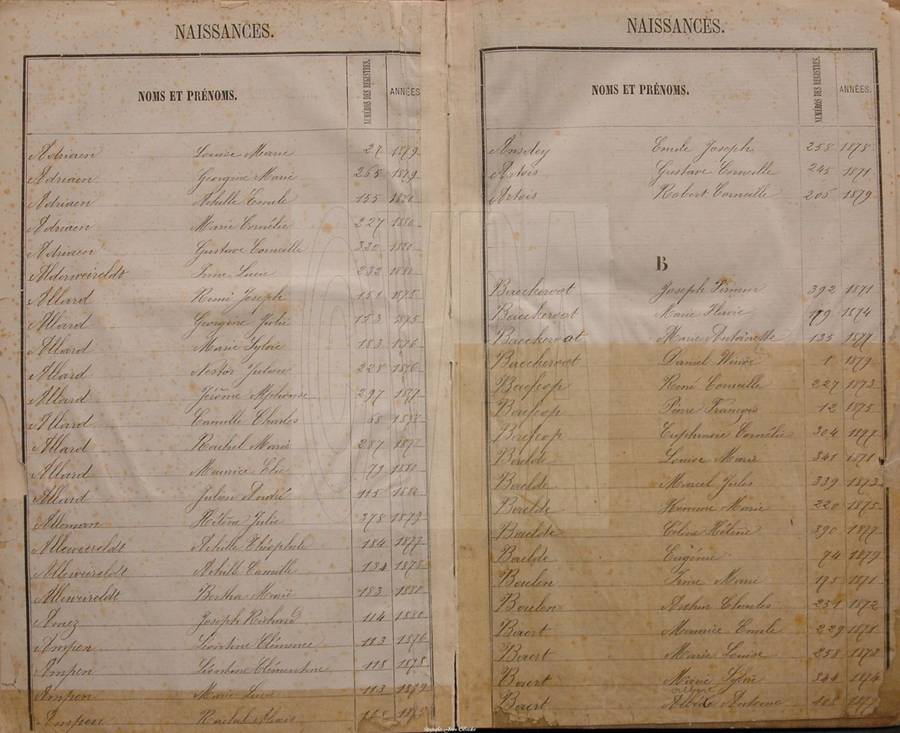 NAISSANCES.
NOMS ET PRÉNOMS. NUMÉROS DES REGISTRES. ANNÉES.
Adriaen Louise Marie 27 1879
Adriaen Georgine Marie 255 1879
Adriaen Achille Emile 155 1880
Adriaen Marie Cornélie 227 1880
Adriaen Gustave Corneille 330 1880
Alderweireldt Irma Lucie 232 1880
Allard Remi Joseph 151 1875
Allard Georgine Julie 153 1875
Allard Marie Sylvie 183 1876
Allard Nestor Julien 228 1876
Allard Jérome Alphonse 297 1877
Allard Camille Charles 68
Allard Rachel Marie 287
Allard Maurice Elie 79 1880
Allard Julien André 115 1880
Alleman Hélène Julie 378 1879
Alleweireldt Achille Théophile 184 1877
Alleweireldt Achille Camille 134 1878
Alleweireldt Bertha Marie 183 1880
Annez Joseph Richard 114 1880
Ampen Léontine Clémence 113 1876
Ampen Léontine Clémentine 118 1878
Ampen Marie 113 1879
Ampen Rachel 1875
NAISSANCES.
NOMS ET PRÉNOMS. NUMÉROS DES REGISTRES. ANNÉES.
Ansdey Emile Joseph 258 1878
Artois Gustave Corneille 245 1871
Artois Robert Corneille 205 1879
B
Baeckeroot Joseph Firmin 392 1871
Baeckeroot Marie 179 1874
Baeckeroot Marie Antoinette 135 1877
Baeckeroot Daniel 1 1879
Baefcop Remi Corneille 227 1873
Baefcop Pierre François 12 1875
Baefcop Euphrasie Cornélie 304 1877
Baelde Louise Marie 341 1871
Baelde Marcel Jules 339 1873
Baelde Hermine Marie 220 1875
Baelde Célina Hélène 390 1877
Baelde Eugénie 74 1879
Baelen Irma Marie 175 1871
Baelen Arthur Charles 251 1872
Baert Maurice Emile 229 1871
Baert Marie Louise 258 1873
Baert Marie Sylvie 344 1874
Baert Antoine